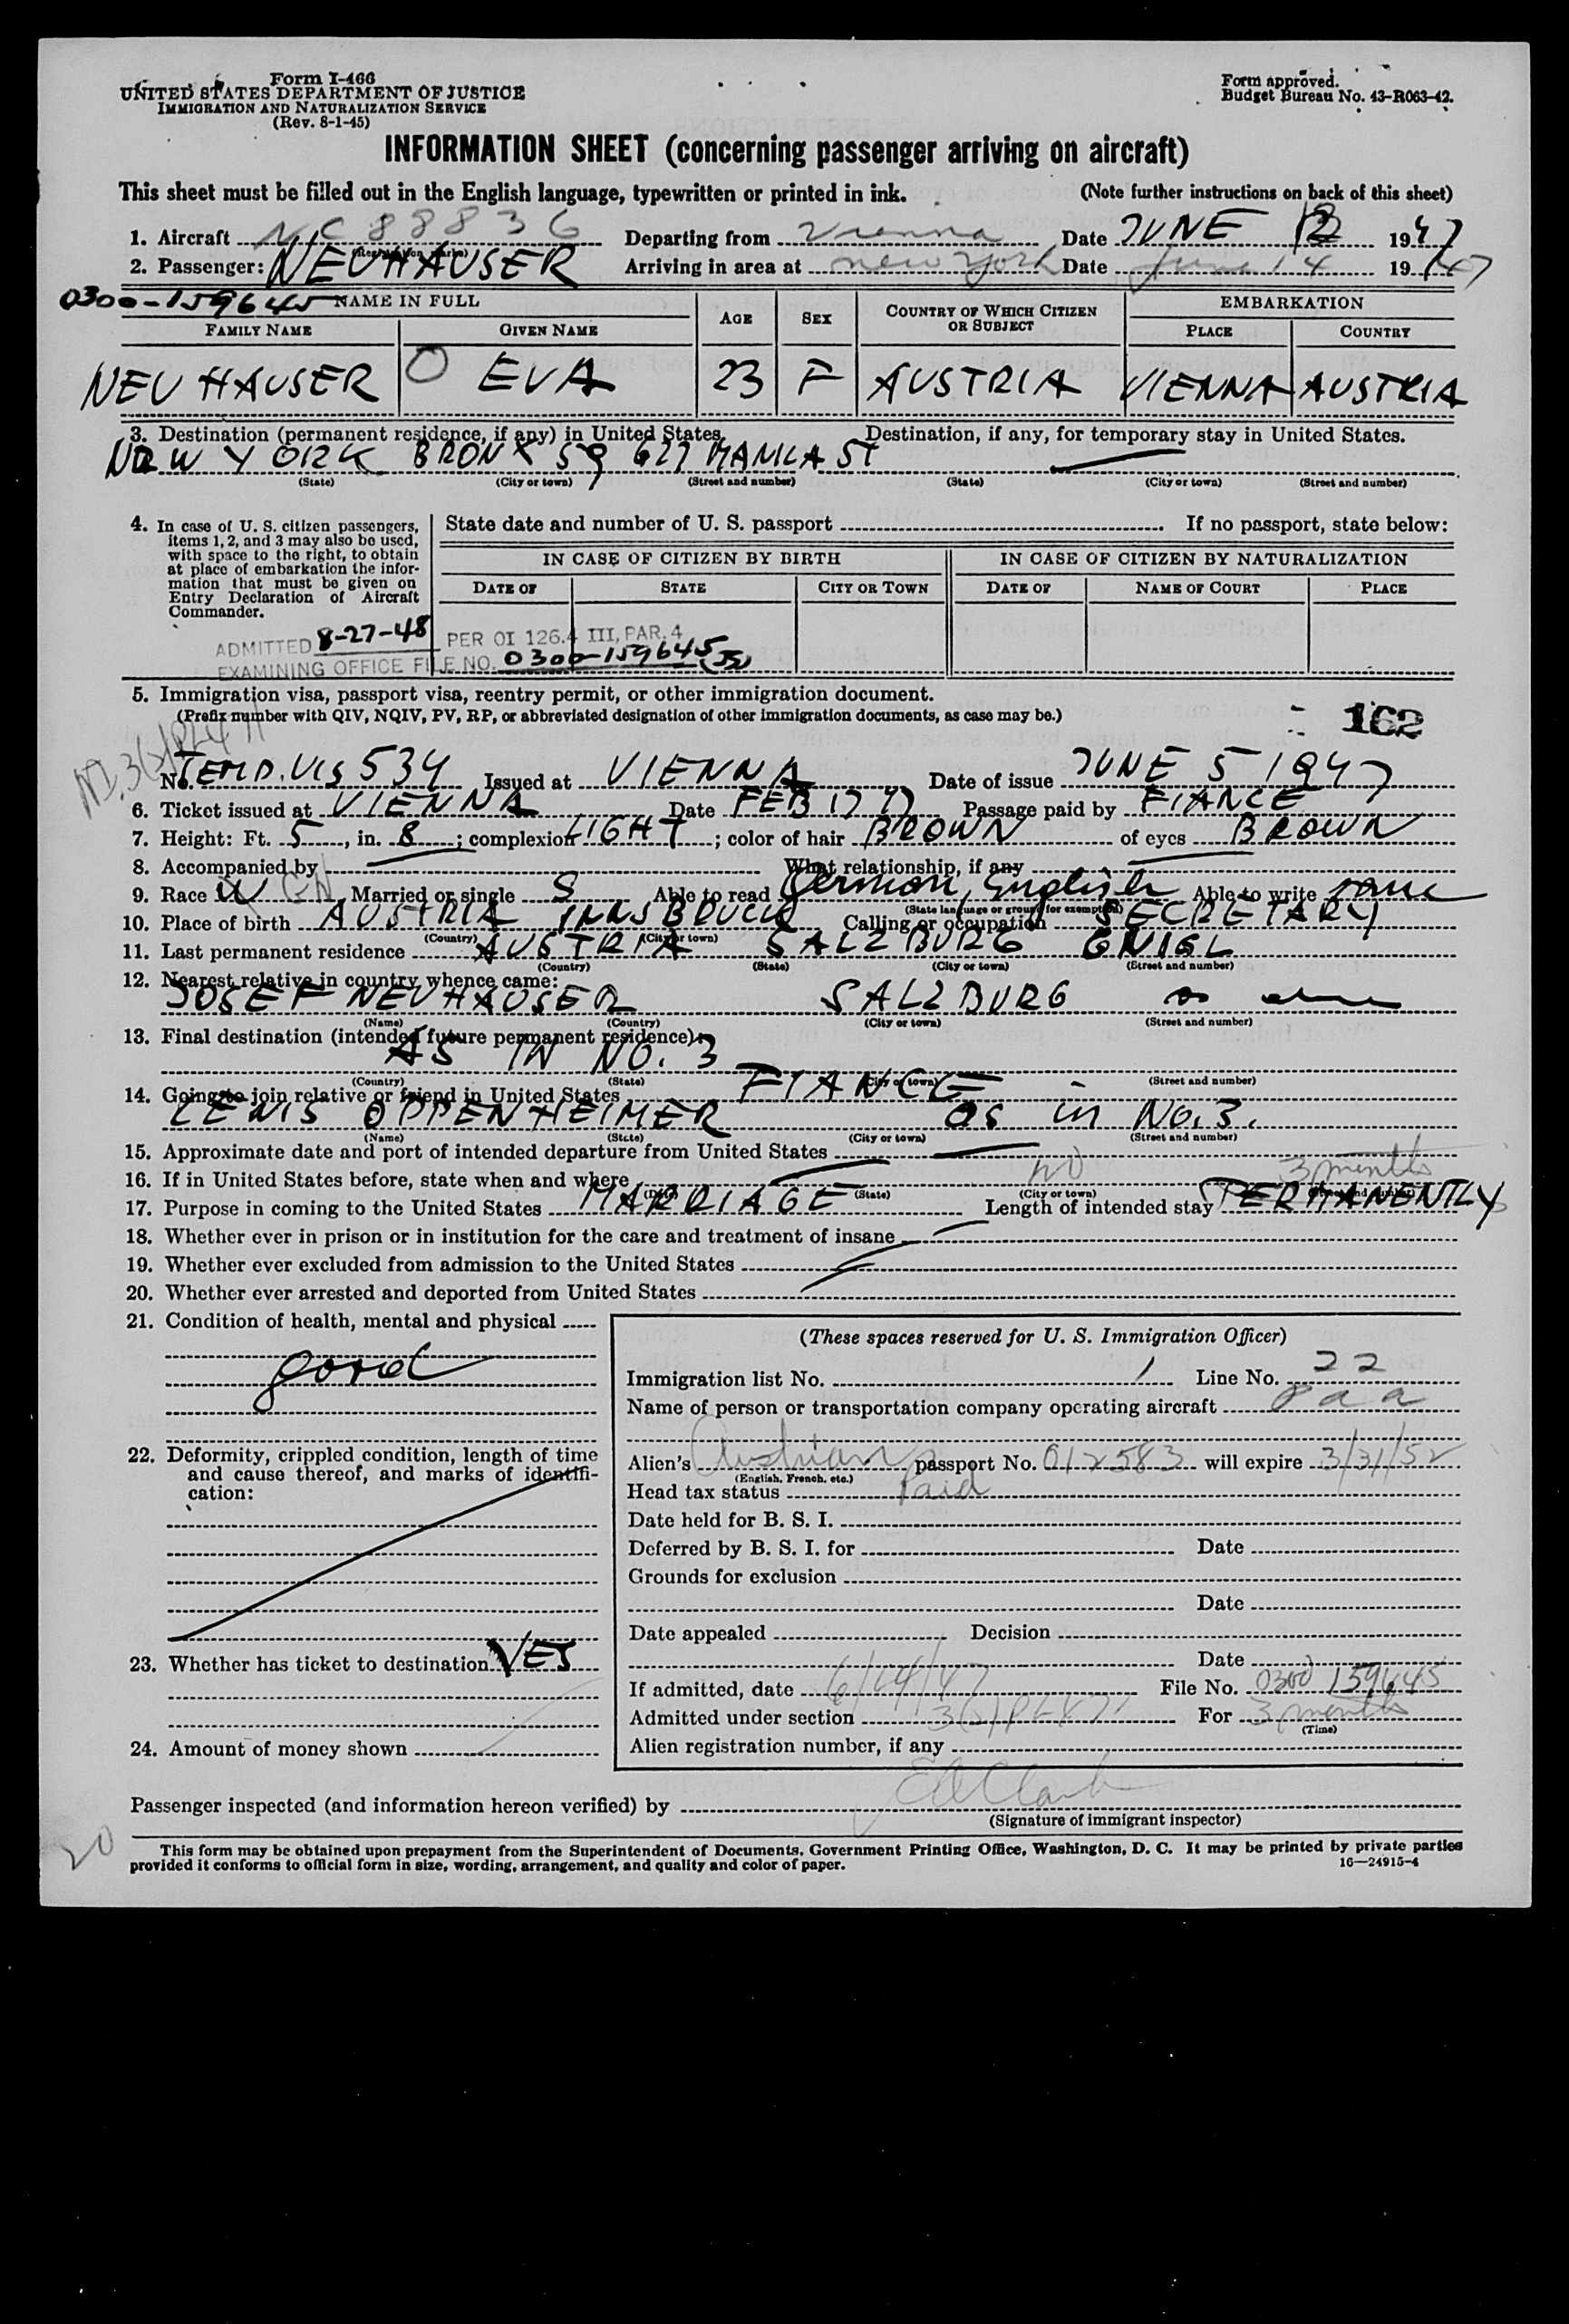 Form I-466
UNITED STATES DEPARTMENT OF JUSTICE
IMMIGRATION AND NATURALIZATION SERVICE
(Rev. 8-1-45)
Form approved.
Budget Bureau No. 43-R063-42.
INFORMATION SHEET (concerning passenger arriving on aircraft)
This sheet must be filled out in the English language, typewritten or printed in ink. (Note further instructions on back of this sheet)
1. Aircraft NC 88836 Departing from Vienna Date JUNE 12 1947
2. Passenger: NEUHAUSER Arriving in area at New York Date June 14 1947
0300-159645 NAME IN FULL AGE SEX COUNTRY OF WHICH CITIZEN OR SUBJECT EMBARKATION
FAMILY NAME GIVEN NAME PLACE COUNTRY
NEUHAUSER O EVA 23 F AUSTRIA VIENNA AUSTRIA
3. Destination (permanent residence, if any) in United States. Destination, if any, for temporary stay in United States.
NEW YORK BRONX 59 627 MANILA ST
(State) (City or town) (Street and number) (State) (City or town) (Street and number)
4. In case of U. S. citizen passengers, items 1, 2, and 3 may also be used, with space to the right, to obtain at place of embarkation the information that must be given on Entry Declaration of Aircraft Commander.
State date and number of U. S. passport If no passport, state below:
IN CASE OF CITIZEN BY BIRTH IN CASE OF CITIZEN BY NATURALIZATION
DATE OF STATE CITY OR TOWN DATE OF NAME OF COURT PLACE
ADMITTED 8-27-48 PER OI 126.4 III, PAR. 4
EXAMINING OFFICE FILE NO. 0300-159645
5. Immigration visa, passport visa, reentry permit, or other immigration document.
(Prefix number with QIV, NQIV, PV, RP, or abbreviated designation of other immigration documents, as case may be.)
162
No. TEMP. VIS 534 Issued at VIENNA Date of issue JUNE 5 1947
6. Ticket issued at VIENNA Date FEB 17 47 Passage paid by FIANCE
7. Height: Ft. 5, in. 8; complexion LIGHT; color of hair BROWN of eyes BROWN
8. Accompanied by What relationship, if any
9. Race W Married or single S Able to read German, English Able to write same
(State language or ground for exemption)
10. Place of birth AUSTRIA INNSBRUCK Calling or occupation SECRETARY
(Country) (City or town)
11. Last permanent residence AUSTRIA SALZBURG GNIGL
(Country) (State) (City or town) (Street and number)
12. Nearest relative in country whence came:
JOSEF NEUHAUSER SALZBURG as above
(Name) (Country) (City or town) (Street and number)
13. Final destination (intended future permanent residence)
AS IN NO. 3
(Country) (State) (City or town) (Street and number)
14. Going to join relative or friend in United States FIANCE
LEWIS OPPENHEIMER as in No. 3.
(Name) (State) (City or town) (Street and number)
15. Approximate date and port of intended departure from United States
16. If in United States before, state when and where no 3 months
(Date) (State) (City or town) (Street and number)
17. Purpose in coming to the United States MARRIAGE Length of intended stay PERMANENTLY
18. Whether ever in prison or in institution for the care and treatment of insane
19. Whether ever excluded from admission to the United States
20. Whether ever arrested and deported from United States
21. Condition of health, mental and physical
good
22. Deformity, crippled condition, length of time and cause thereof, and marks of identification:
23. Whether has ticket to destination YES
24. Amount of money shown
(These spaces reserved for U. S. Immigration Officer)
Immigration list No. 1 Line No. 22
Name of person or transportation company operating aircraft P a a
Alien's Austrian passport No. 012583 will expire 3/31/52
(English, French, etc.)
Head tax status Paid
Date held for B. S. I.
Deferred by B. S. I. for Date
Grounds for exclusion
Date
Date appealed Decision
Date
If admitted, date 6/14/47 File No. 0300 159645
Admitted under section 3(2) PL 471 For 3 months
(Time)
Alien registration number, if any
Passenger inspected (and information hereon verified) by E A Clark
(Signature of immigrant inspector)
20
This form may be obtained upon prepayment from the Superintendent of Documents, Government Printing Office, Washington, D. C. It may be printed by private parties
provided it conforms to official form in size, wording, arrangement, and quality and color of paper. 16—24915-4